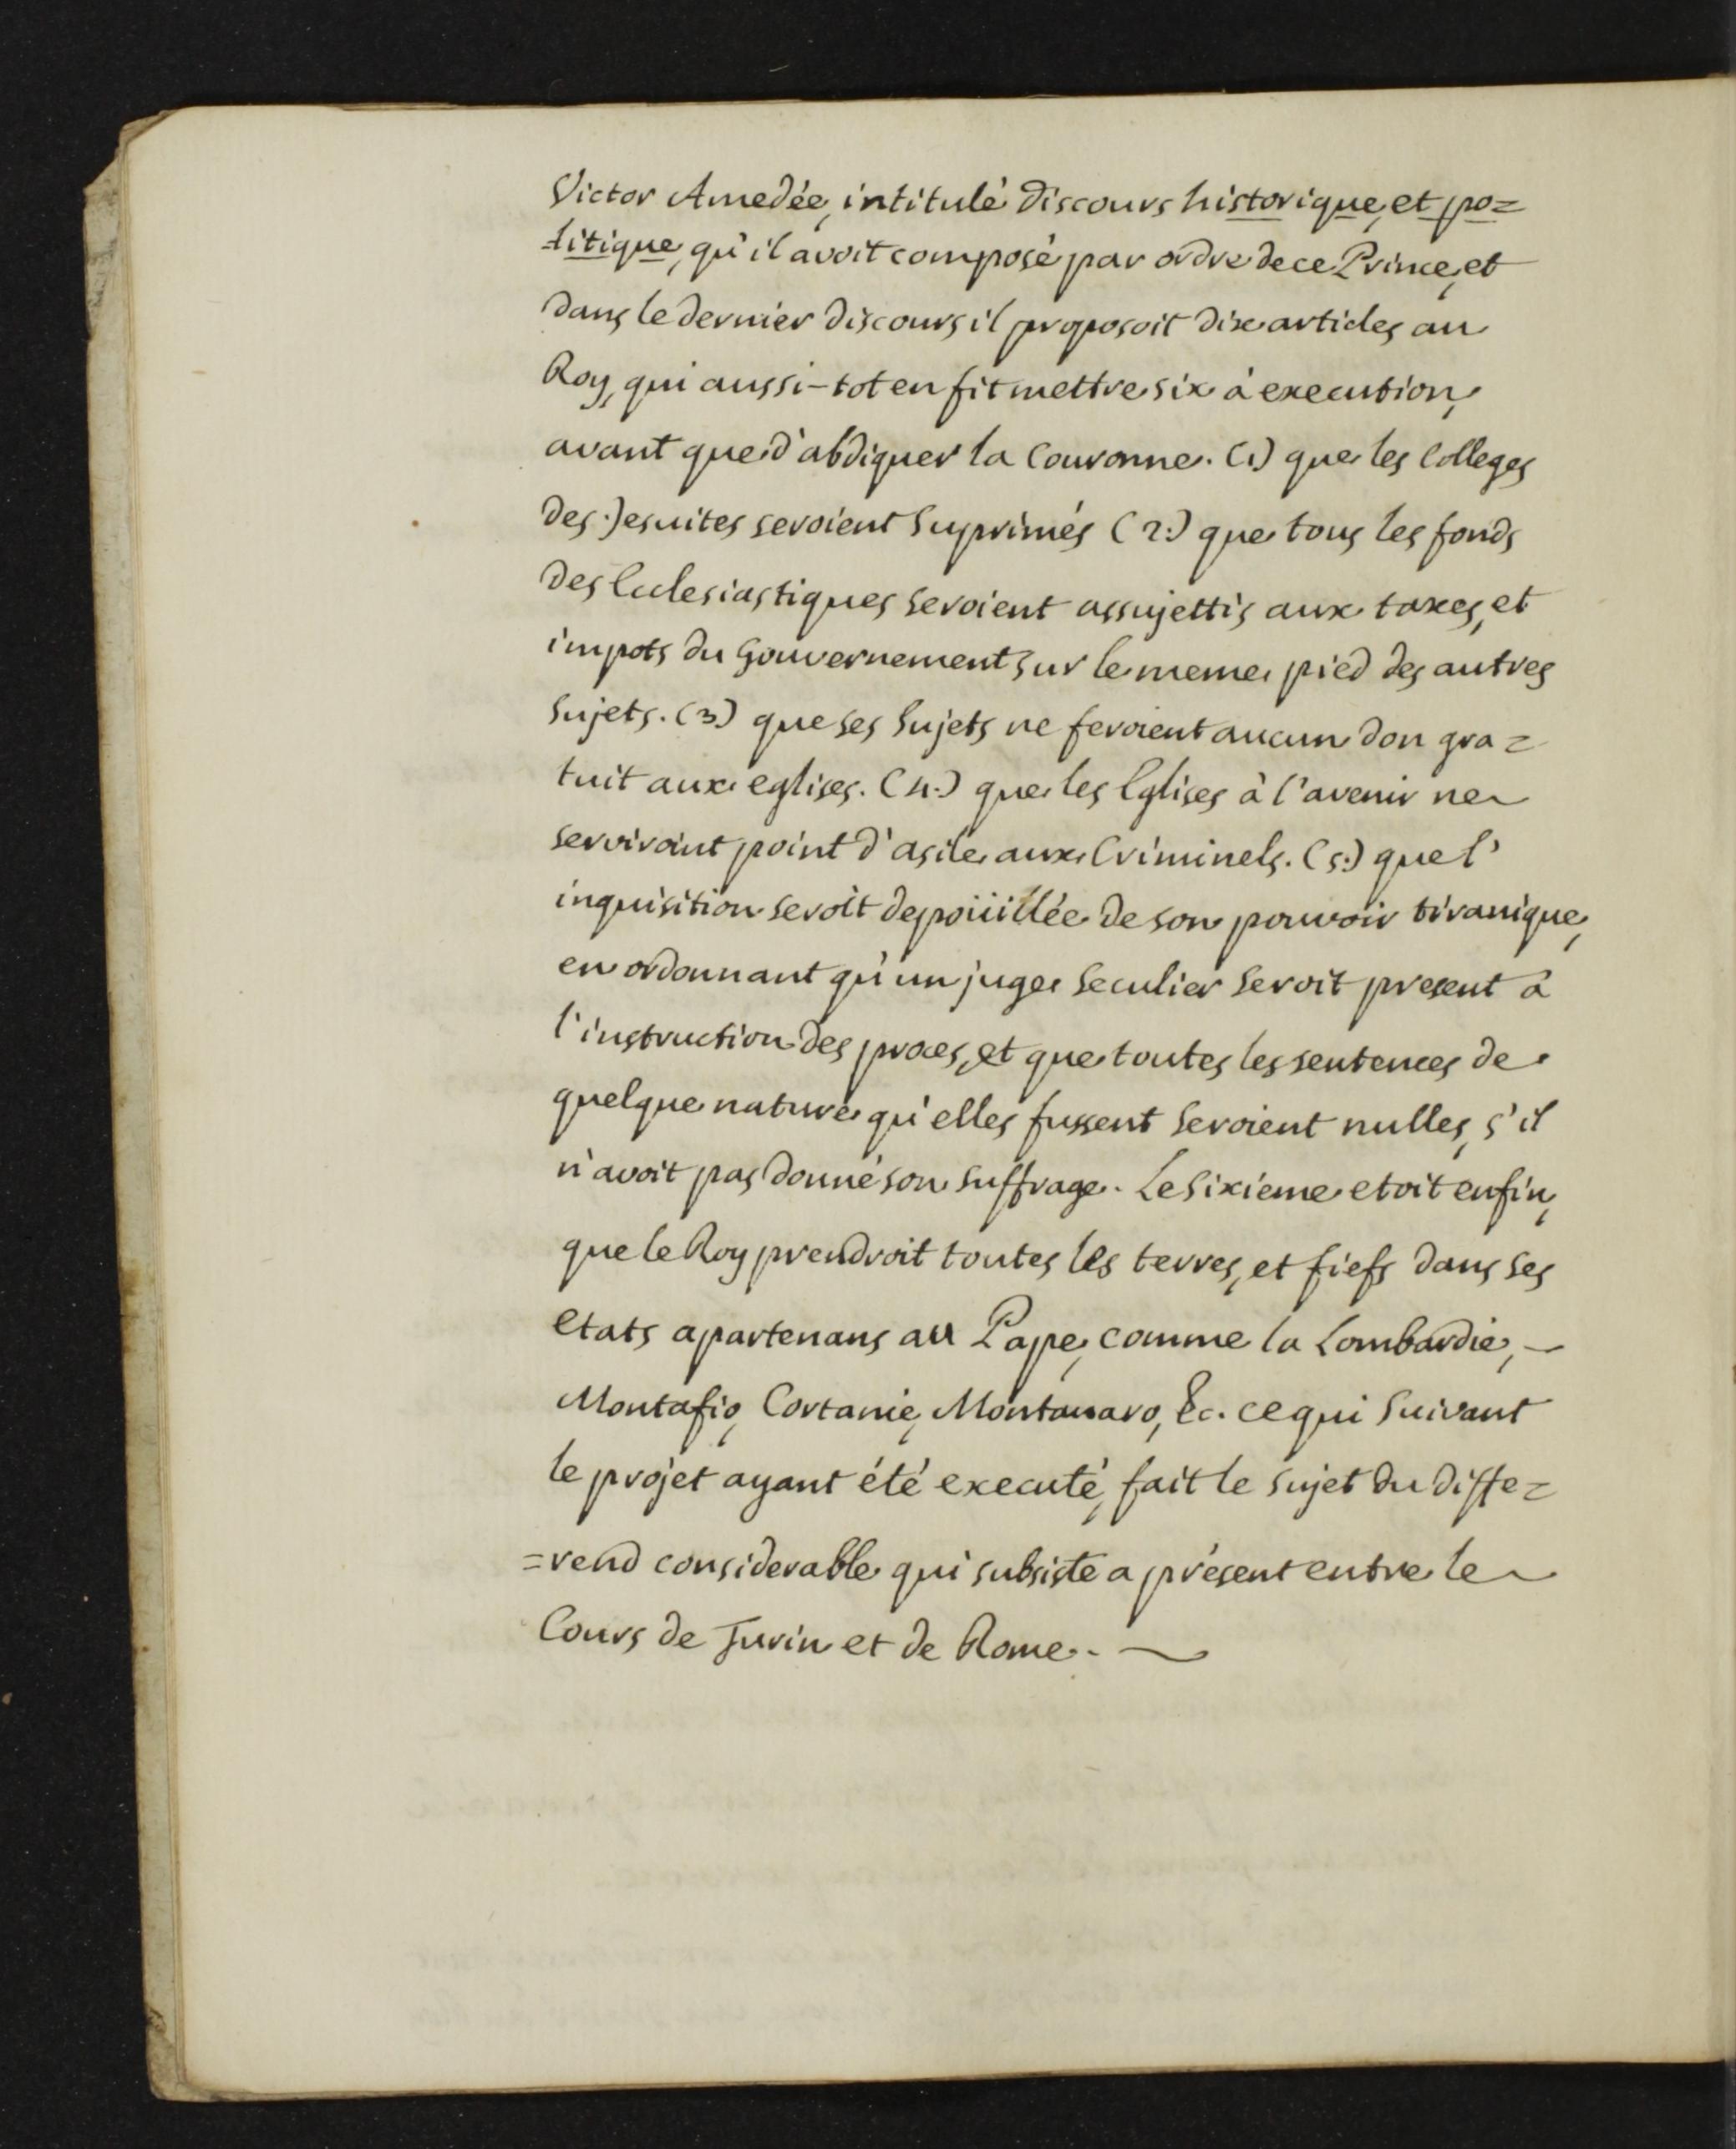 Victor Amedée, intitulé discours historique, et po=
litique, qu'il avoit composé par ordre de ce Prince, et
dans le dernier discours il proposoit dix articles au
Roy, qui aussi-tot en fit mettre six à execution,
avant que d'abdiquer la Couronne. (1.) que les Colleges
des Jesuites seroient Suprimés (2.) que tous les fonds
des Ecclesiastiques seroient assujettis aux taxes, et
impots du Gouvernement Sur le meme pied des autres
Sujets. (3.) que ses Sujets ne feroient aucun don gra=
tuit aux eglises. (4.) que les Eglises à l'avenir ne
serviroint point d'asile aux Criminels. (5.) que l'
inquisition seroit depoüillée de son pouvoir tiranique,
en ordonnant qu'un juge Seculier Seroit present à
l'instruction des proces, et que toutes les sentences de
quelque nature qu'elles fussent Seroient nulles, s'il
n'avoit pas donné son suffrage. Le Sixieme etoit enfin,
que le Roy prendroit toutes les terres, et fiefs dans ses
etats apartenans au Pape, comme la Lombardie,
Montafio, Cortanie, Montanaro, &c. ce qui Suivant
le projet ayant été executé, fait le Sujet du diffe=
=rend considerable qui subsiste a présent entre le
Cours de Turin et de Rome.